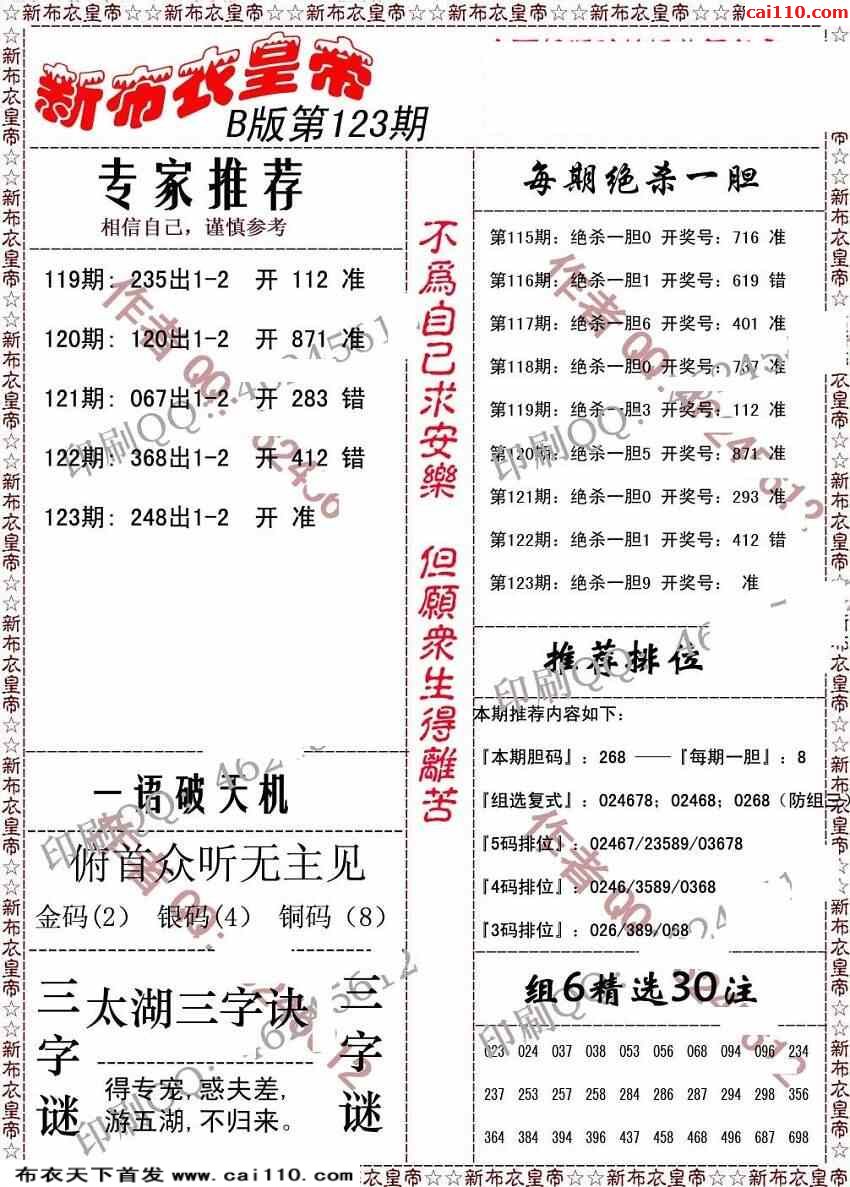 ☆新布衣皇帝☆☆新布衣皇帝☆☆新布衣皇帝☆☆新布衣皇帝☆☆新布衣皇帝☆☆新
cai110.com
新布衣皇帝
B版第123期
专家推荐
相信自己，谨慎参考
119期: 235出1-2 开 112 准
120期: 120出1-2 开 871 准
121期: 067出1-2 开 283 错
122期: 368出1-2 开 412 错
123期: 248出1-2 开 准
一语破天机
俯首众听无主见
金码(2) 银码(4) 铜码（8）
三字谜
太湖三字诀
得专宠,惑夫差,
游五湖,不归来。
三字谜
不為自己求安樂
但願衆生得離苦
每期绝杀一胆
第115期: 绝杀一胆0 开奖号: 716 准
第116期: 绝杀一胆1 开奖号: 619 错
第117期: 绝杀一胆6 开奖号: 401 准
第118期: 绝杀一胆0 开奖号: 737 准
第119期: 绝杀一胆3 开奖号: 112 准
第120期: 绝杀一胆5 开奖号: 871 准
第121期: 绝杀一胆0 开奖号: 293 准
第122期: 绝杀一胆1 开奖号: 412 错
第123期: 绝杀一胆9 开奖号: 准
推荐排位
本期推荐内容如下:
『本期胆码』: 268 ——『每期一胆』: 8
『组选复式』: 024678; 02468; 0268（防组三）
『5码排位』: 02467/23589/03678
『4码排位』: 0246/3589/0368
『3码排位』: 026/389/068
组6精选30注
023 024 037 038 053 056 068 094 096 234
237 253 257 258 284 286 287 294 298 356
364 384 394 396 437 458 468 496 687 698
布衣天下首发 www.cai110.com
衣皇帝☆☆新布衣皇帝☆☆新布衣皇帝☆☆新布衣皇帝☆